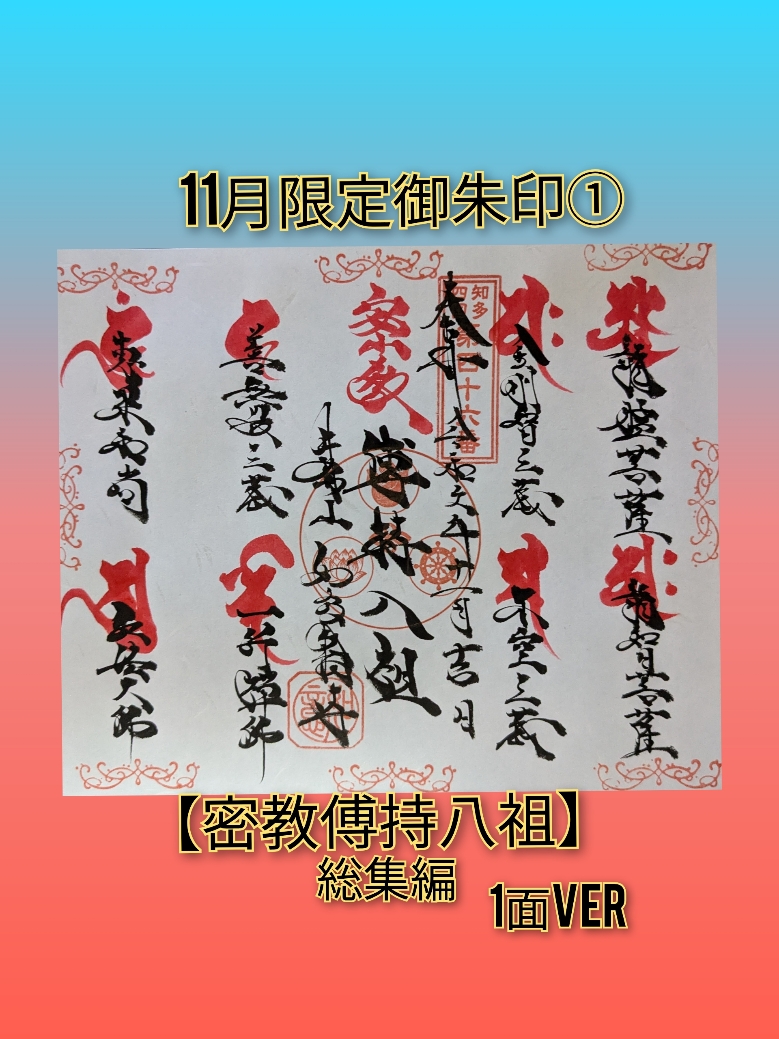 11月限定御朱印①
龍猛菩薩
龍智菩薩
金剛智三蔵
不空三蔵
知多
四国
第四十六番
奉拝
十一月吉日
密教
傳持八祖
井際山 如意輪寺
善無畏三蔵
一行禅師
恵果和尚
弘法大師
【密教傅持八祖】
総集編
1面VER